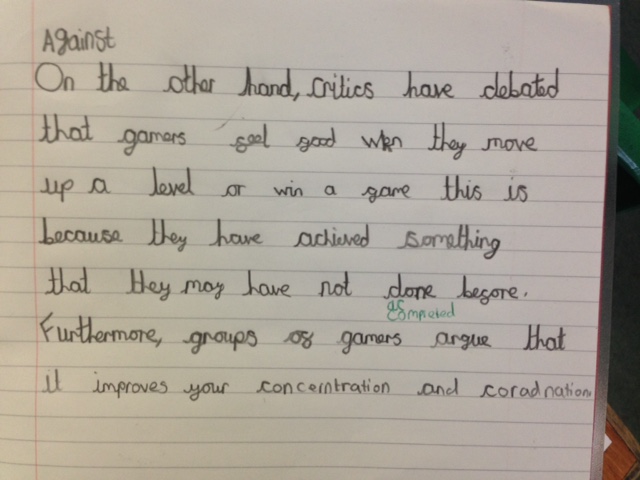 Against
On the other hand, critics have debated
that gamers feel good when they move
up a level or win a game this is
because they have achieved something
that they may have not done before.
as
completed
Furthermore, groups of gamers argue that
it improves your concerntration and coradnation